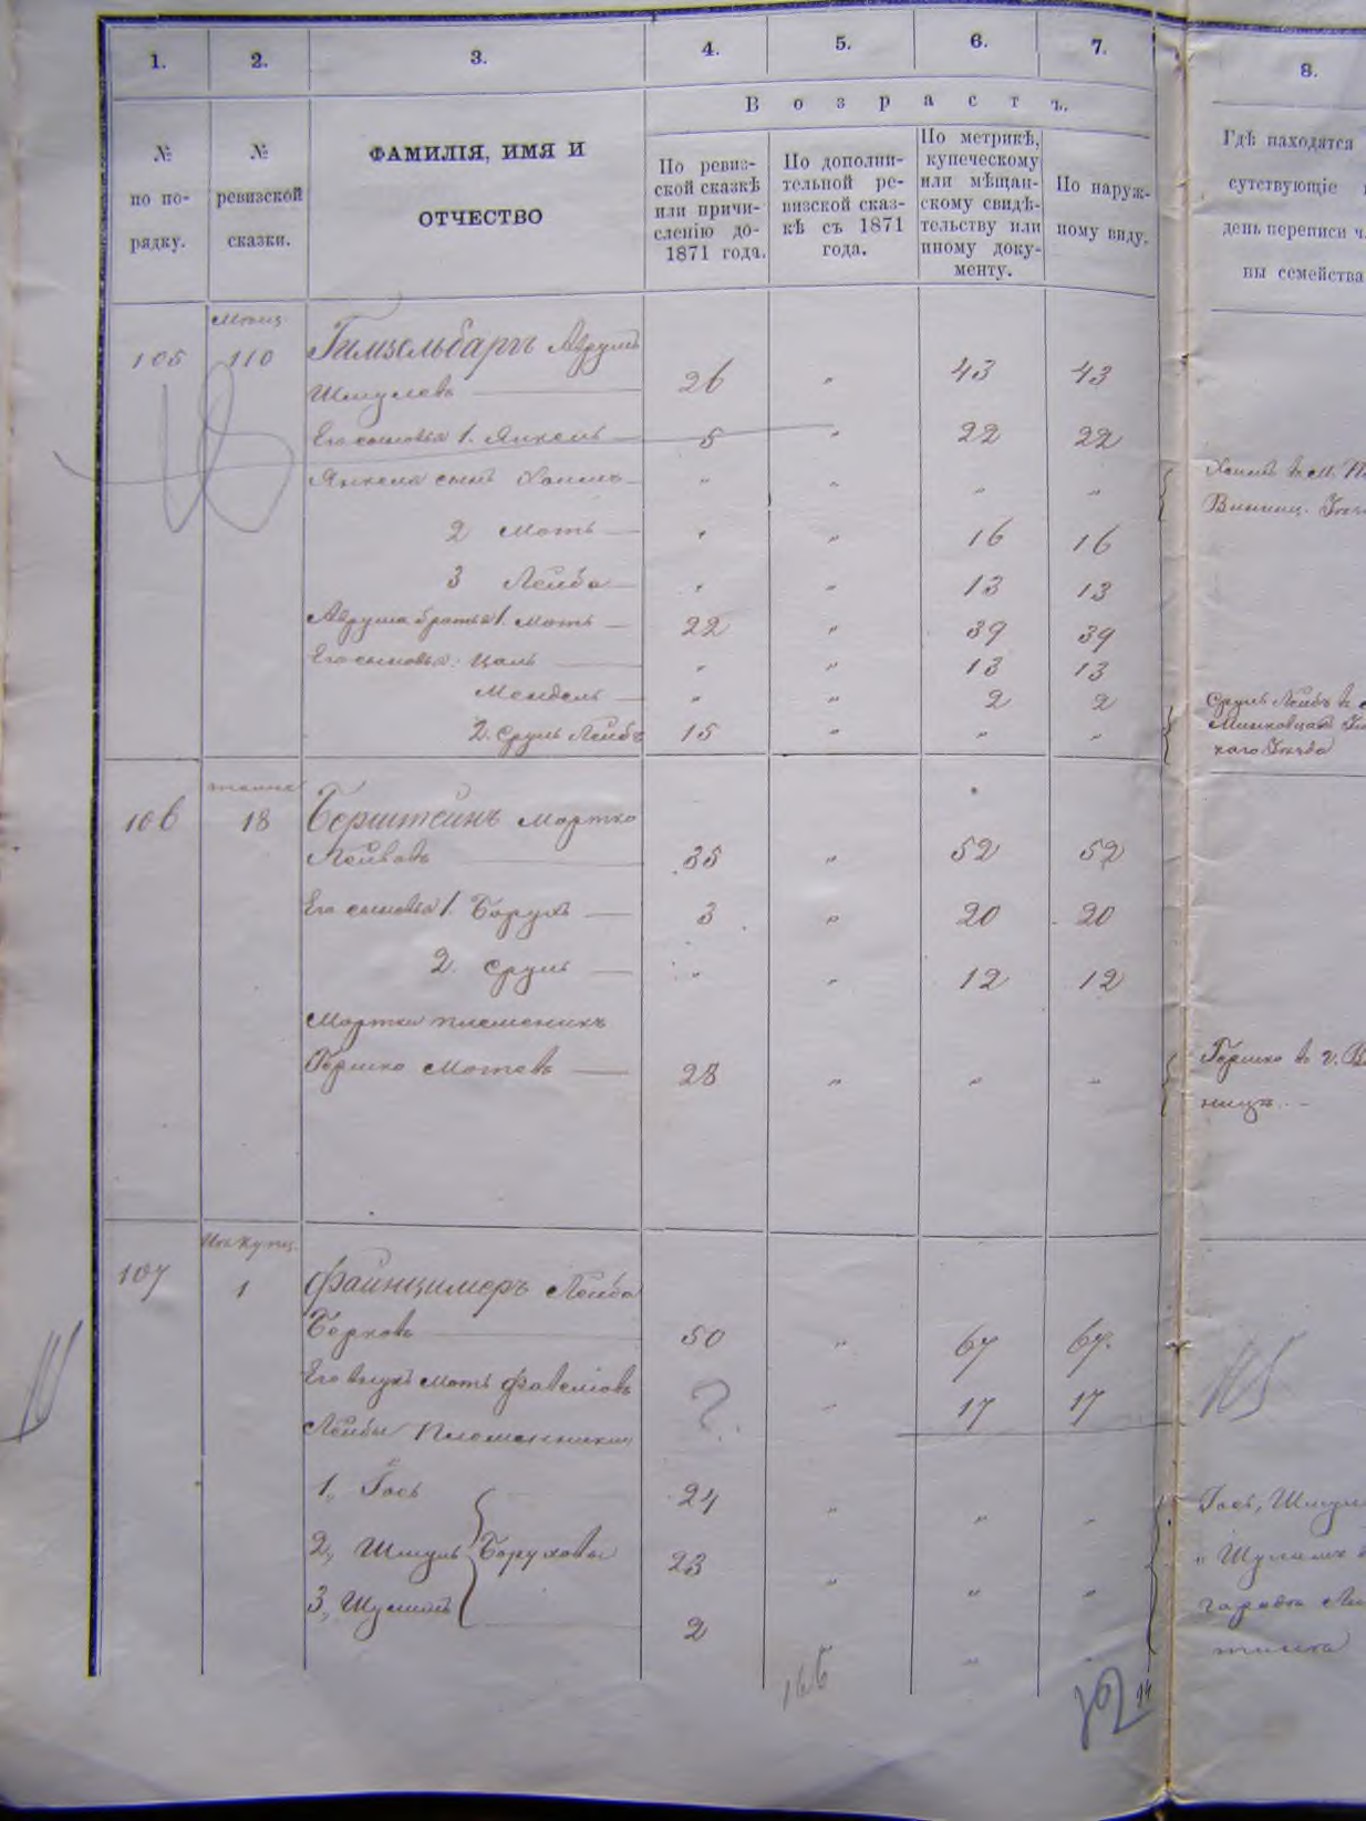 1. 2. 3. 4. 5. 6. 7. 8.
В о з р а с т ъ.
№ по по-рядку.
№ ревизской сказки.
ФАМИЛІЯ, ИМЯ И
ОТЧЕСТВО
По ревиз-
ской сказкѣ
или причи-
сленію до-
1871 года.
По дополни-
тельной ре-
визской сказ-
кѣ съ 1871
года.
По метрикѣ,
купеческому
или мѣщан-
скому свидѣ-
тельству или
иному доку-
менту.
По наруж-
ному виду.
Гдѣ находятся
сутствующіе
день переписи ч
ны семейства
105 110 Гимельбаргъ Аврумъ
Шмулевъ 26 " 43 43
Его сыновья 1. Янкель 5 " 22 22
Янкеля сынъ Хаимъ " " " "
2 Моть " " 16 16
3 Лейба " " 13 13
Аврума братья 1. Моть 22 " 39 39
Его сыновья: Цаль " " 13 13
Мендель " " 2 2
2. Сруль Лейбъ 15 " " "
Сруль Лейбъ въ
Миньковцахъ
каго Уѣзда
106 18 Берштейнъ Мортко
Лейбовъ 35 " 52 52
Его сыновья 1. Борухъ 3 " 20 20
2. Сруль " " 12 12
Мортки племеникъ
Гершко Мотевъ 28 " " "
Гершко въ г. В
ницѣ
107 1 Файнцимеръ Лейба
Берковъ 50 " 67 67.
Его внукъ Моть ? " 17 17
Лейбы Племенники
1, Гось 24 " " "
2, Шмуль Боруховы 23 " " "
3, Шулимъ 2 " "
Гось, Шмуль
" Шулимъ
166